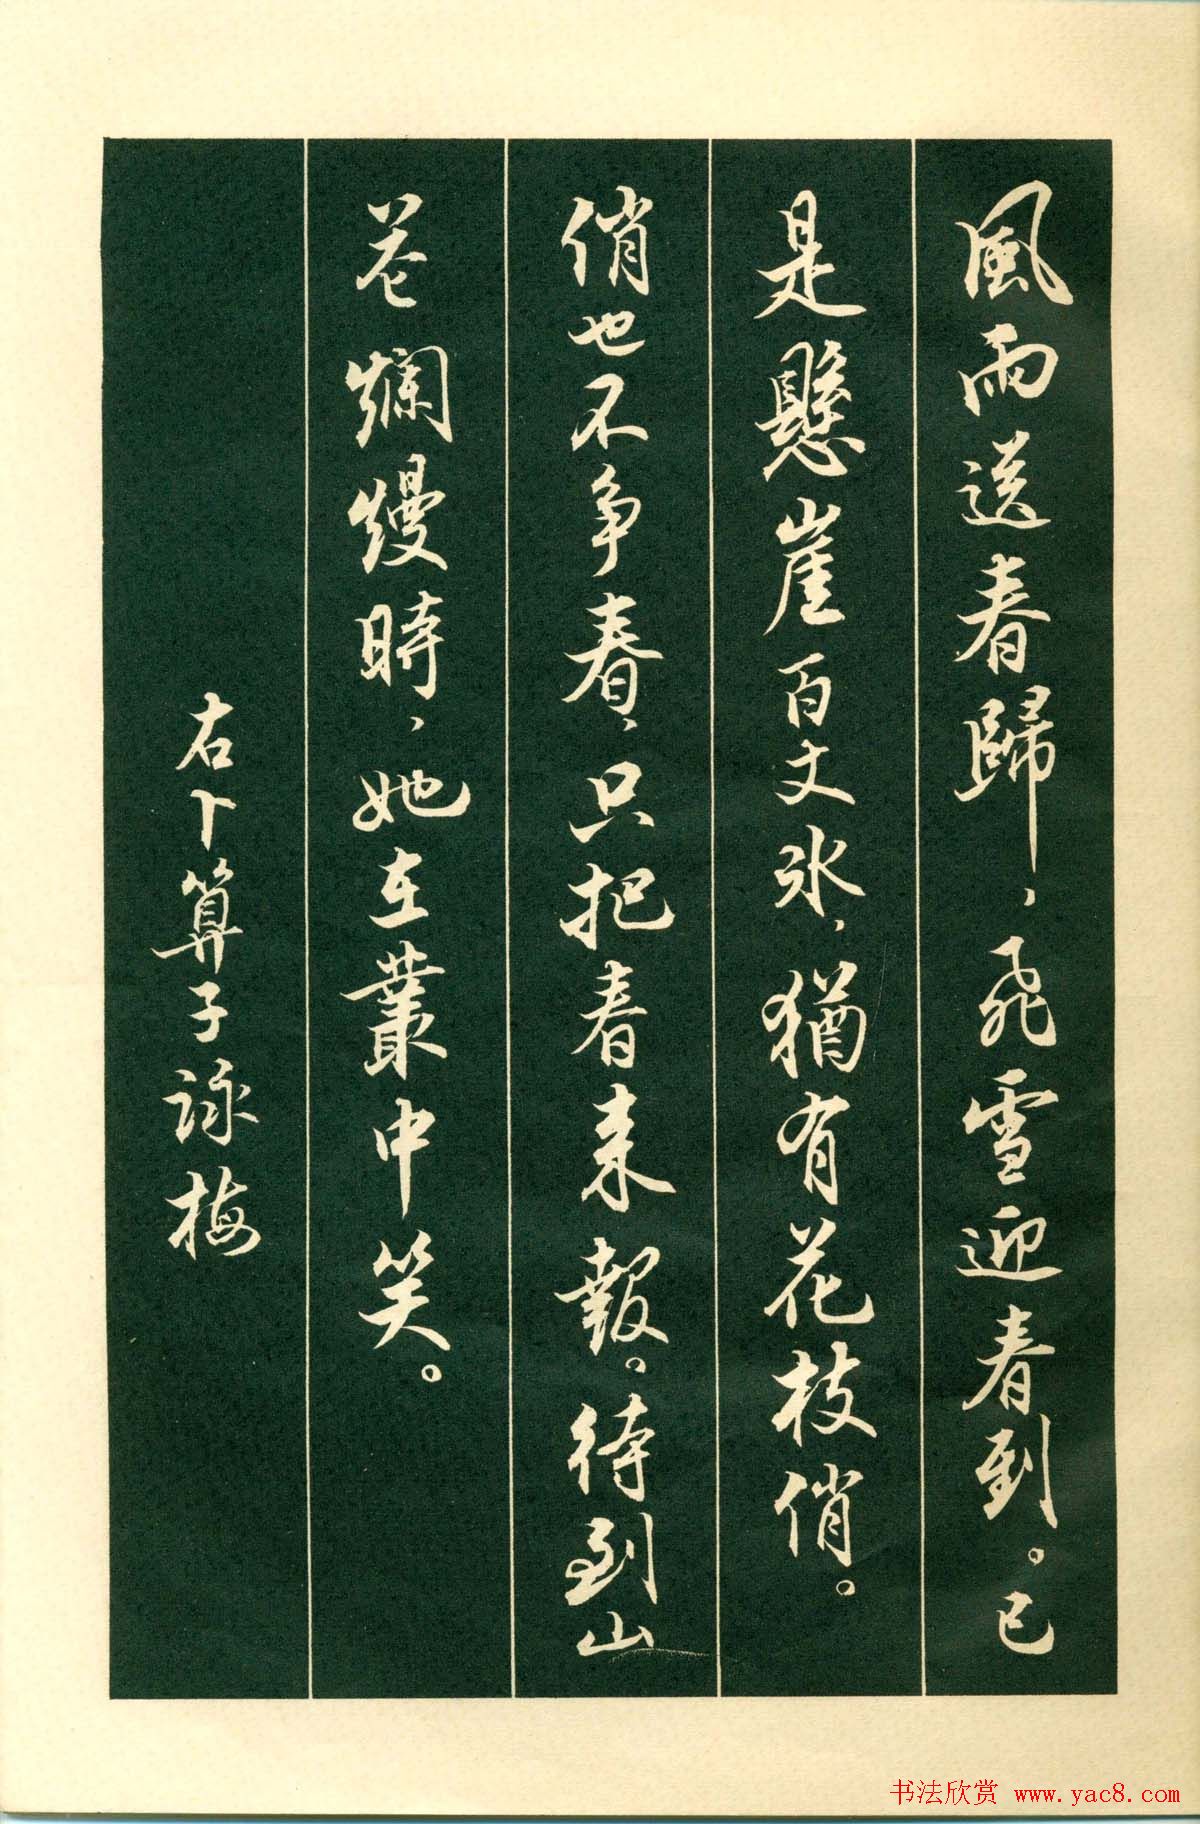 風雨送春歸，飛雪迎春到。已
是懸崖百丈冰，猶有花枝俏。
俏也不争春，只把春来報。待到山
花爛熳時，她在叢中笑。
右卜算子詠梅
书法欣赏 www.yac8.com